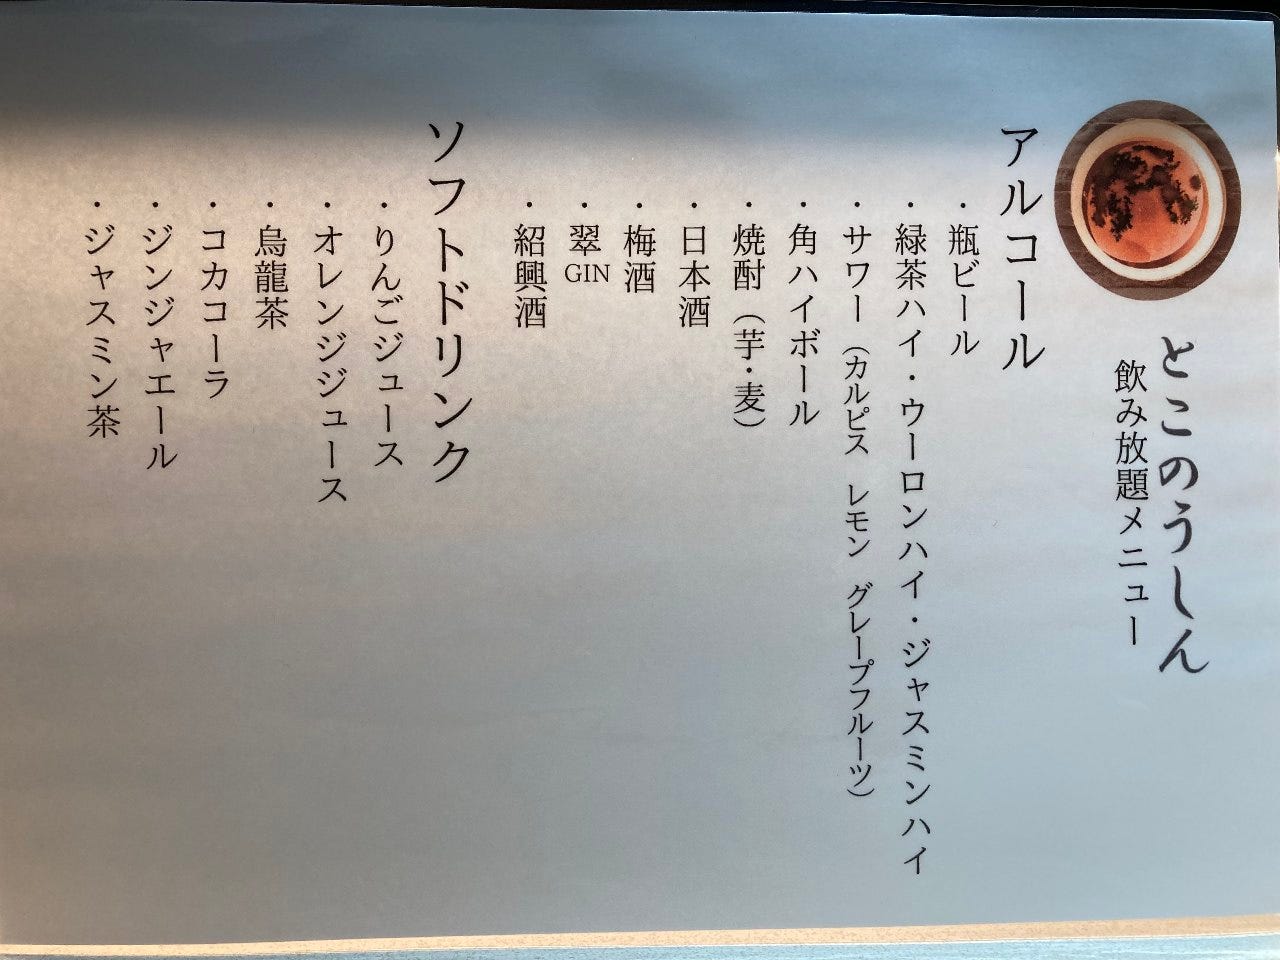 とこのうしん
飲み放題メニュー
アルコール
・瓶ビール
・緑茶ハイ・ウーロンハイ・ジャスミンハイ
・サワー（カルピス　レモン　グレープフルーツ）
・角ハイボール
・焼酎（芋・麦）
・日本酒
・梅酒
・翠GIN
・紹興酒
ソフトドリンク
・りんごジュース
・オレンジジュース
・烏龍茶
・コカコーラ
・ジンジャエール
・ジャスミン茶